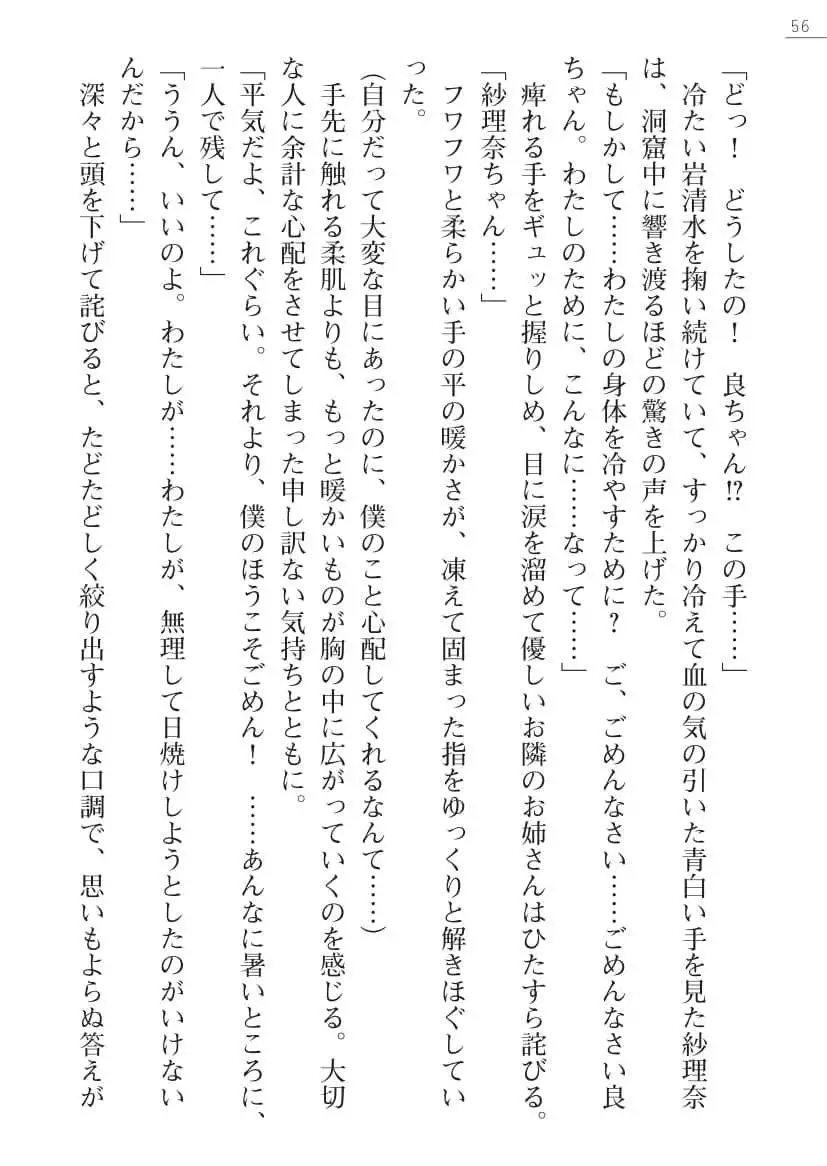 56
「どっ！　どうしたの！　良ちゃん!?　この手……」
　冷たい岩清水を掬い続けていて、すっかり冷えて血の気の引いた青白い手を見た紗理奈
は、洞窟中に響き渡るほどの驚きの声を上げた。
「もしかして……わたしの身体を冷やすために？　ご、ごめんなさい……ごめんなさい良
ちゃん。わたしのために、こんなに……なって……」
　痺れる手をギュッと握りしめ、目に涙を溜めて優しいお隣のお姉さんはひたすら詫びる。
「紗理奈ちゃん……」
　フワフワと柔らかい手の平の暖かさが、凍えて固まった指をゆっくりと解きほぐしてい
った。
（自分だって大変な目にあったのに、僕のこと心配してくれるなんて……）
　手先に触れる柔肌よりも、もっと暖かいものが胸の中に広がっていくのを感じる。大切
な人に余計な心配をさせてしまった申し訳ない気持ちとともに。
「平気だよ、これぐらい。それより、僕のほうこそごめん！　……あんなに暑いところに、
一人で残して……」
「ううん、いいのよ。わたしが……わたしが、無理して日焼けしようとしたのがいけない
んだから……」
　深々と頭を下げて詫びると、たどたどしく絞り出すような口調で、思いもよらぬ答えが